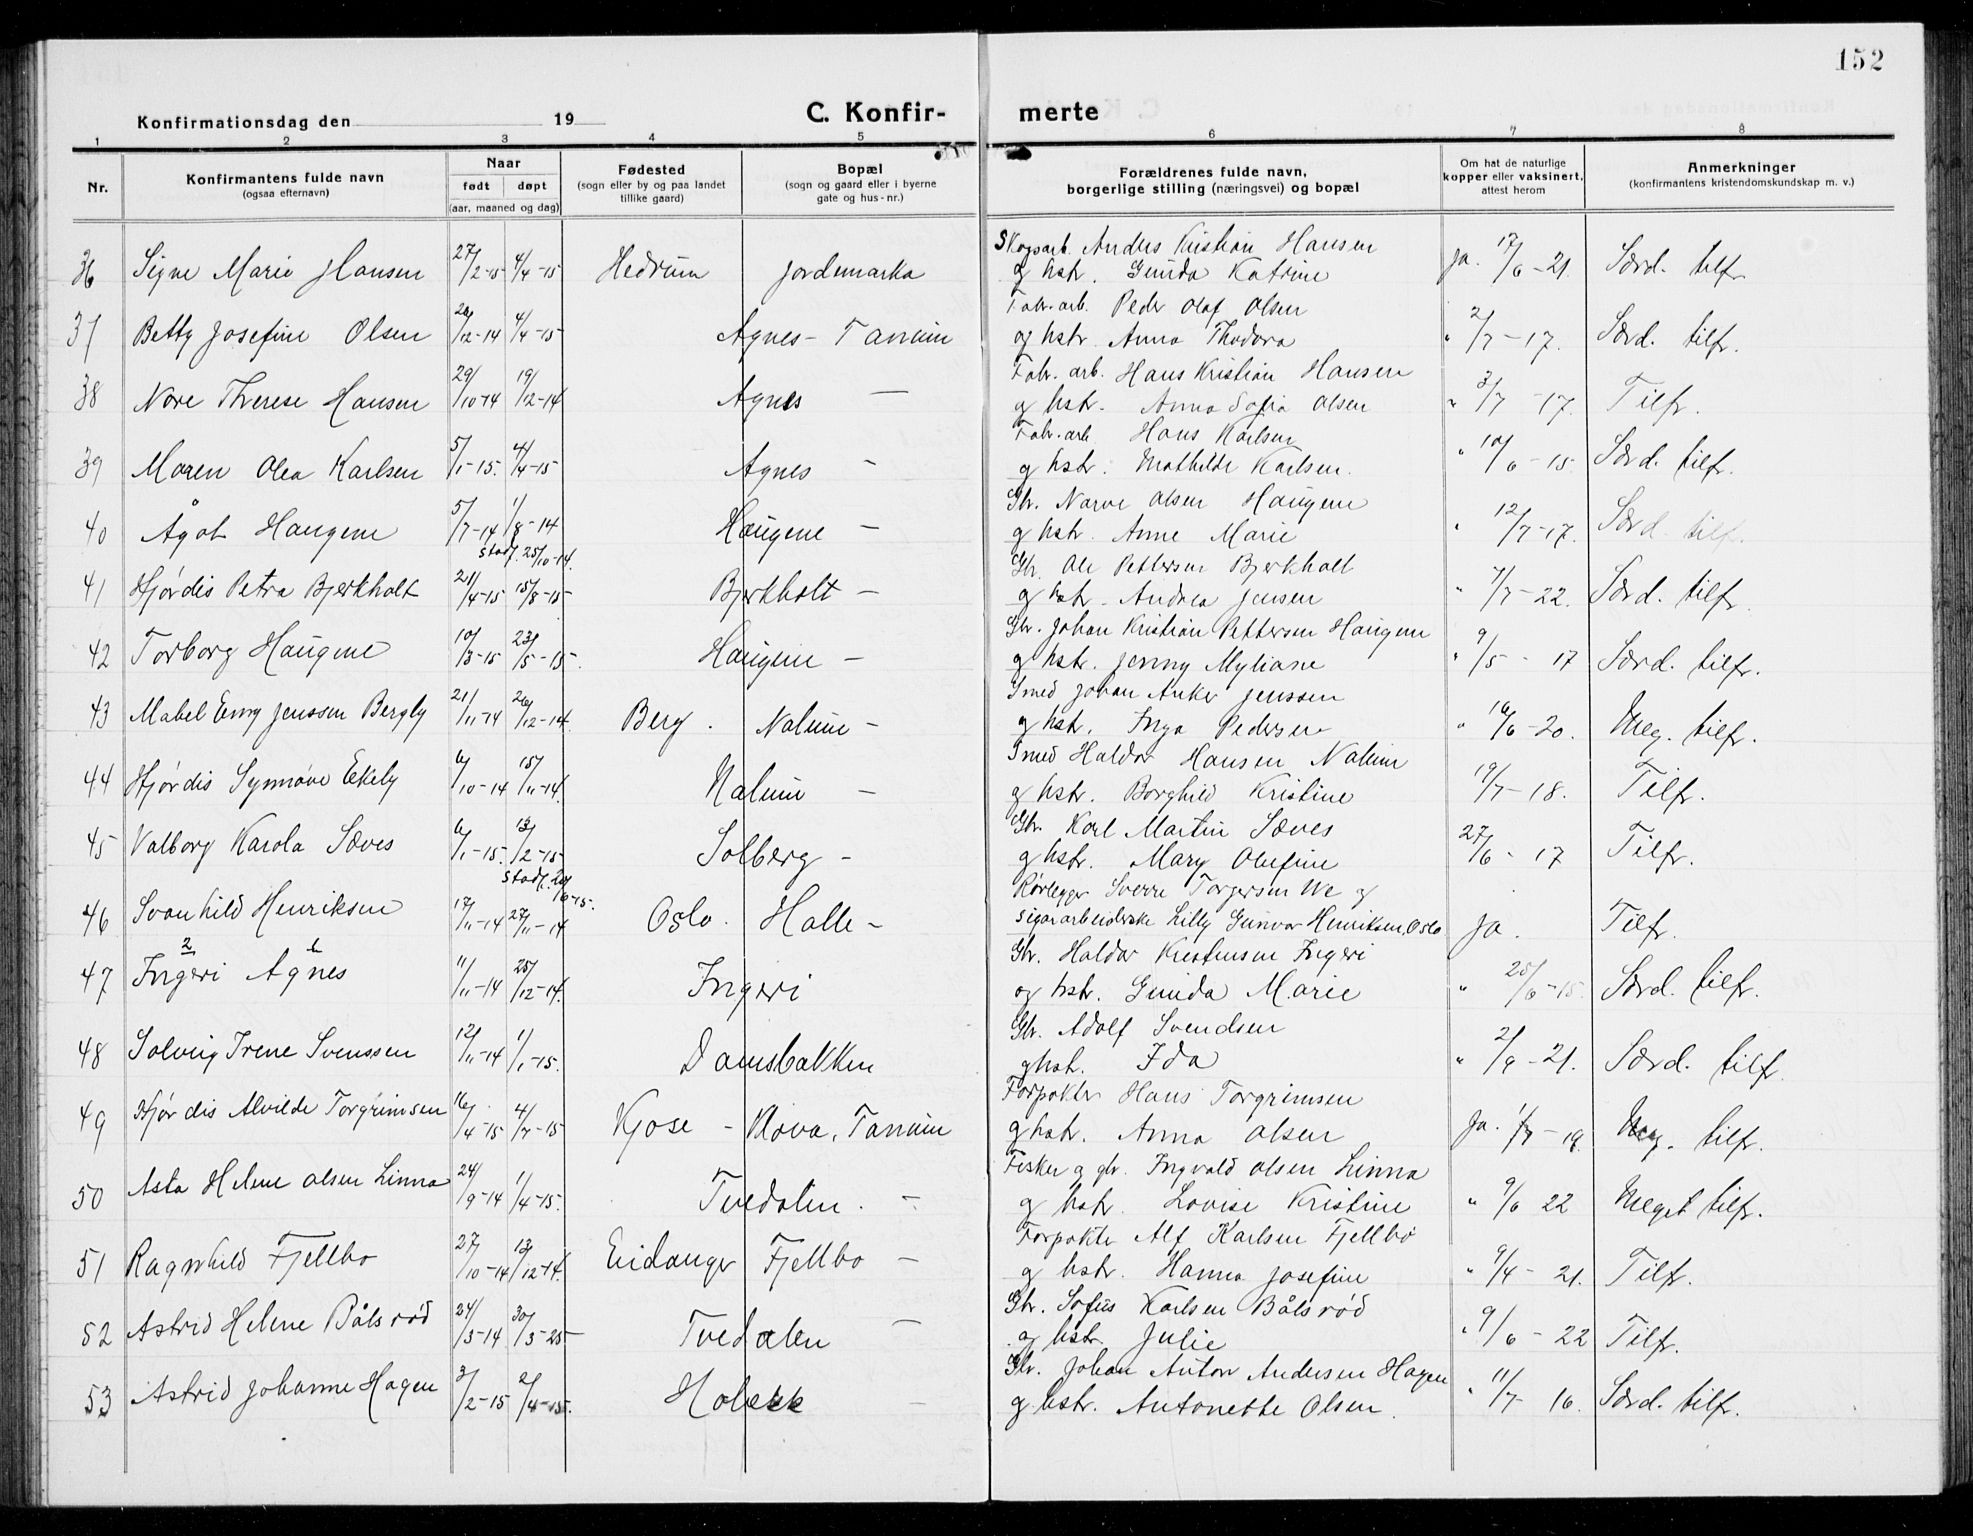 152
Konfirmationsdag den 19
C. Konfir-
merte
1 2 3 4 5 6 7 8
Nr.
Konfirmantens fulde navn
(ogsaa efternavn)
Naar
født døpt
(aar, maaned og dag)
Fødested
(sogn eller by og paa landet
tillike gaard)
Bopæl
(sogn og gaard eller i byerne
gate og hus-nr.)
Forældrenes fulde navn,
borgerlige stilling (næringsvei) og bopæl
Om hat de naturlige
kopper eller vaksinert,
attest herom
Anmerkninger
(konfirmantens kristendomskundskap m. v.)
Skogsarb. Anders Kristian Hansen
36 Signe Marie Hansen 27/2-15 4/4-15 Hedrum Jordemarka g hstr. Gunda Katrine Ja. 17/6-21. Særd. tilfr.
Fabr. arb. Peder Olaf Olsen
37 Betty Josefine Olsen 26/12-14 4/4-15 Agnes - Tanum og hstr. Anna Thodora " 2/7-17. Særd. tilfr.
Fabr. arb. Hans Kristian Hansen
38 Nore Therese Hansen 29/10-14 19/12-14 Agnes — g hstr. Anna Sofia Olsen " 3/7-17. Tilfr.
Fabr. arb. Hans Karlsen
39 Maren Olea Karlsen 5/1-15. 4/4-15 Agnes - g hstr. Mathilde Karlsen. " 10/6-15. Særd. tilfr.
Gbr. Narve Olsen Haugene
40 Ågot Haugene 5/7-14 1/8-14 Haugene — g hstr. Anne Marie " 12/7-17. Særd. tilfr.
stadf. 25/10-14.
Gbr. Ole Pettersen Bjerkholt
41 Hjørdis Petra Bjerkholt 21/4-15 15/8-15 Bjerkholt — g hstr. Andrea Jensen " 7/7-22. Særd. tilfr.
Gbr. Johan Kristian Pettersen Haugene
42 Torborg Haugene 10/3-15 23/5-15. Haugene — g hstr. Jenny Myliane " 9/5-17 Særd. tilfr.
Smed Johan Anker Jenssen
43 Mabel Emy Jenssen Bergly 21/11-14 26/12-14. Berg. Nalum - g hstr. Inga Pedersen " 16/6-20. Meg. tilfr.
Smed Haldor Hansen Nalum
44 Hjørdis Synnøve Ekely 6/10-14 15/11-14. Nalum — g hstr. Borghild Kristine 19/7-18. Tilfr.
Gbr. Karl Martin Sæves
45 Valborg Karola Sæves 6/1-15. 13/2-15 Solberg - g hstr. Mary Olufine 27/6-17 Tilfr.
stadf. 20/6-15.
Rørlegger Sverre Torgersen We g
46 Svanhild Henriksen 17/11-14 27/11-14 Oslo. Halle - sigararbeiderske Lilly Gunvor Henriksen, Oslo Ja. Tilfr.
2 1
Gbr. Haldor Kristensen Ingeri
47 Ingeri Agnes 11/11-14 25/12-14. Ingeri og hstr. Gunda Marie " 25/6-15. Særd. tilfr.
Gbr. Adolf Svendsen
48 Solveig Irene Svenssen 12/11-14 1/1-15. Damsbakken g hstr. Ida " 2/9-21. Særd. tilfr.
Forpakter Hans Torgrimsen
49 Hjørdis Alvilde Torgrimsen 16/4-15 4/7-15 Kjose - Kløva, Tanum g hstr. Anna Olsen Ja. 1/7-19. Meg. tilfr.
Fisker g gbr. Ingvald Olsen Linna
50 Asta Helene Olsen Linna 24/9-14 1/4-15. Tvedalen. - g hstr. Lovise Kristine " 9/6 22 Meget tilfr.
Forpakter Alf Karlsen Fjellbo
51 Ragnhild Fjellbo 27/10-14 13/12-14. Eidanger Fjellbo — g hstr. Hanna Josefine " 9/4-21. Tilfr.
Gbr. Sofus Karlsen Bålsrød
52 Astrid Helene Bålsrød 24/3-14 30/3-25 Tvedalen — og hstr. Julie " 9/6-22 Tilfr.
Gbr. Johan Anton Andersen Hagen
53 Astrid Johanne Hagen 3/2-15 2/4-15. Holekk - g hstr. Antonette Olsen. " 11/7-16. Særd. tilfr.